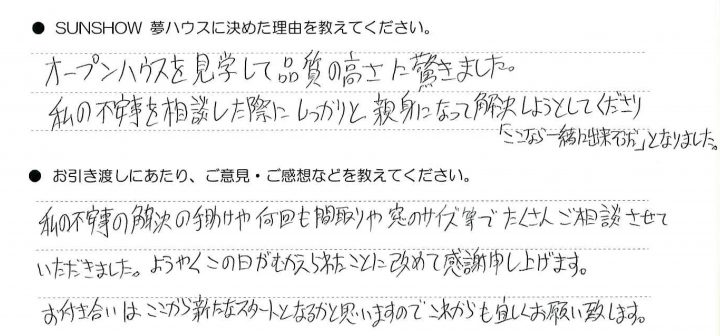 ● SUNSHOW 夢ハウスに決めた理由を教えてください。
オープンハウスを見学して品質の高さに驚きました。
私の不安事を相談した際にしっかりと親身になって解決しようとしてくださり
「ここなら一緒に出来そうだ」となりました。
● お引き渡しにあたり、ご意見・ご感想などを教えてください。
私の不安事の解決の手助けや何回も間取りや窓のサイズ等でたくさんご相談させて
いただきました。ようやくこの日がむかえられたことに改めて感謝申し上げます。
お付き合いは、ここから新たなスタートとなるかと思いますのでこれからも宜しくお願い致します。